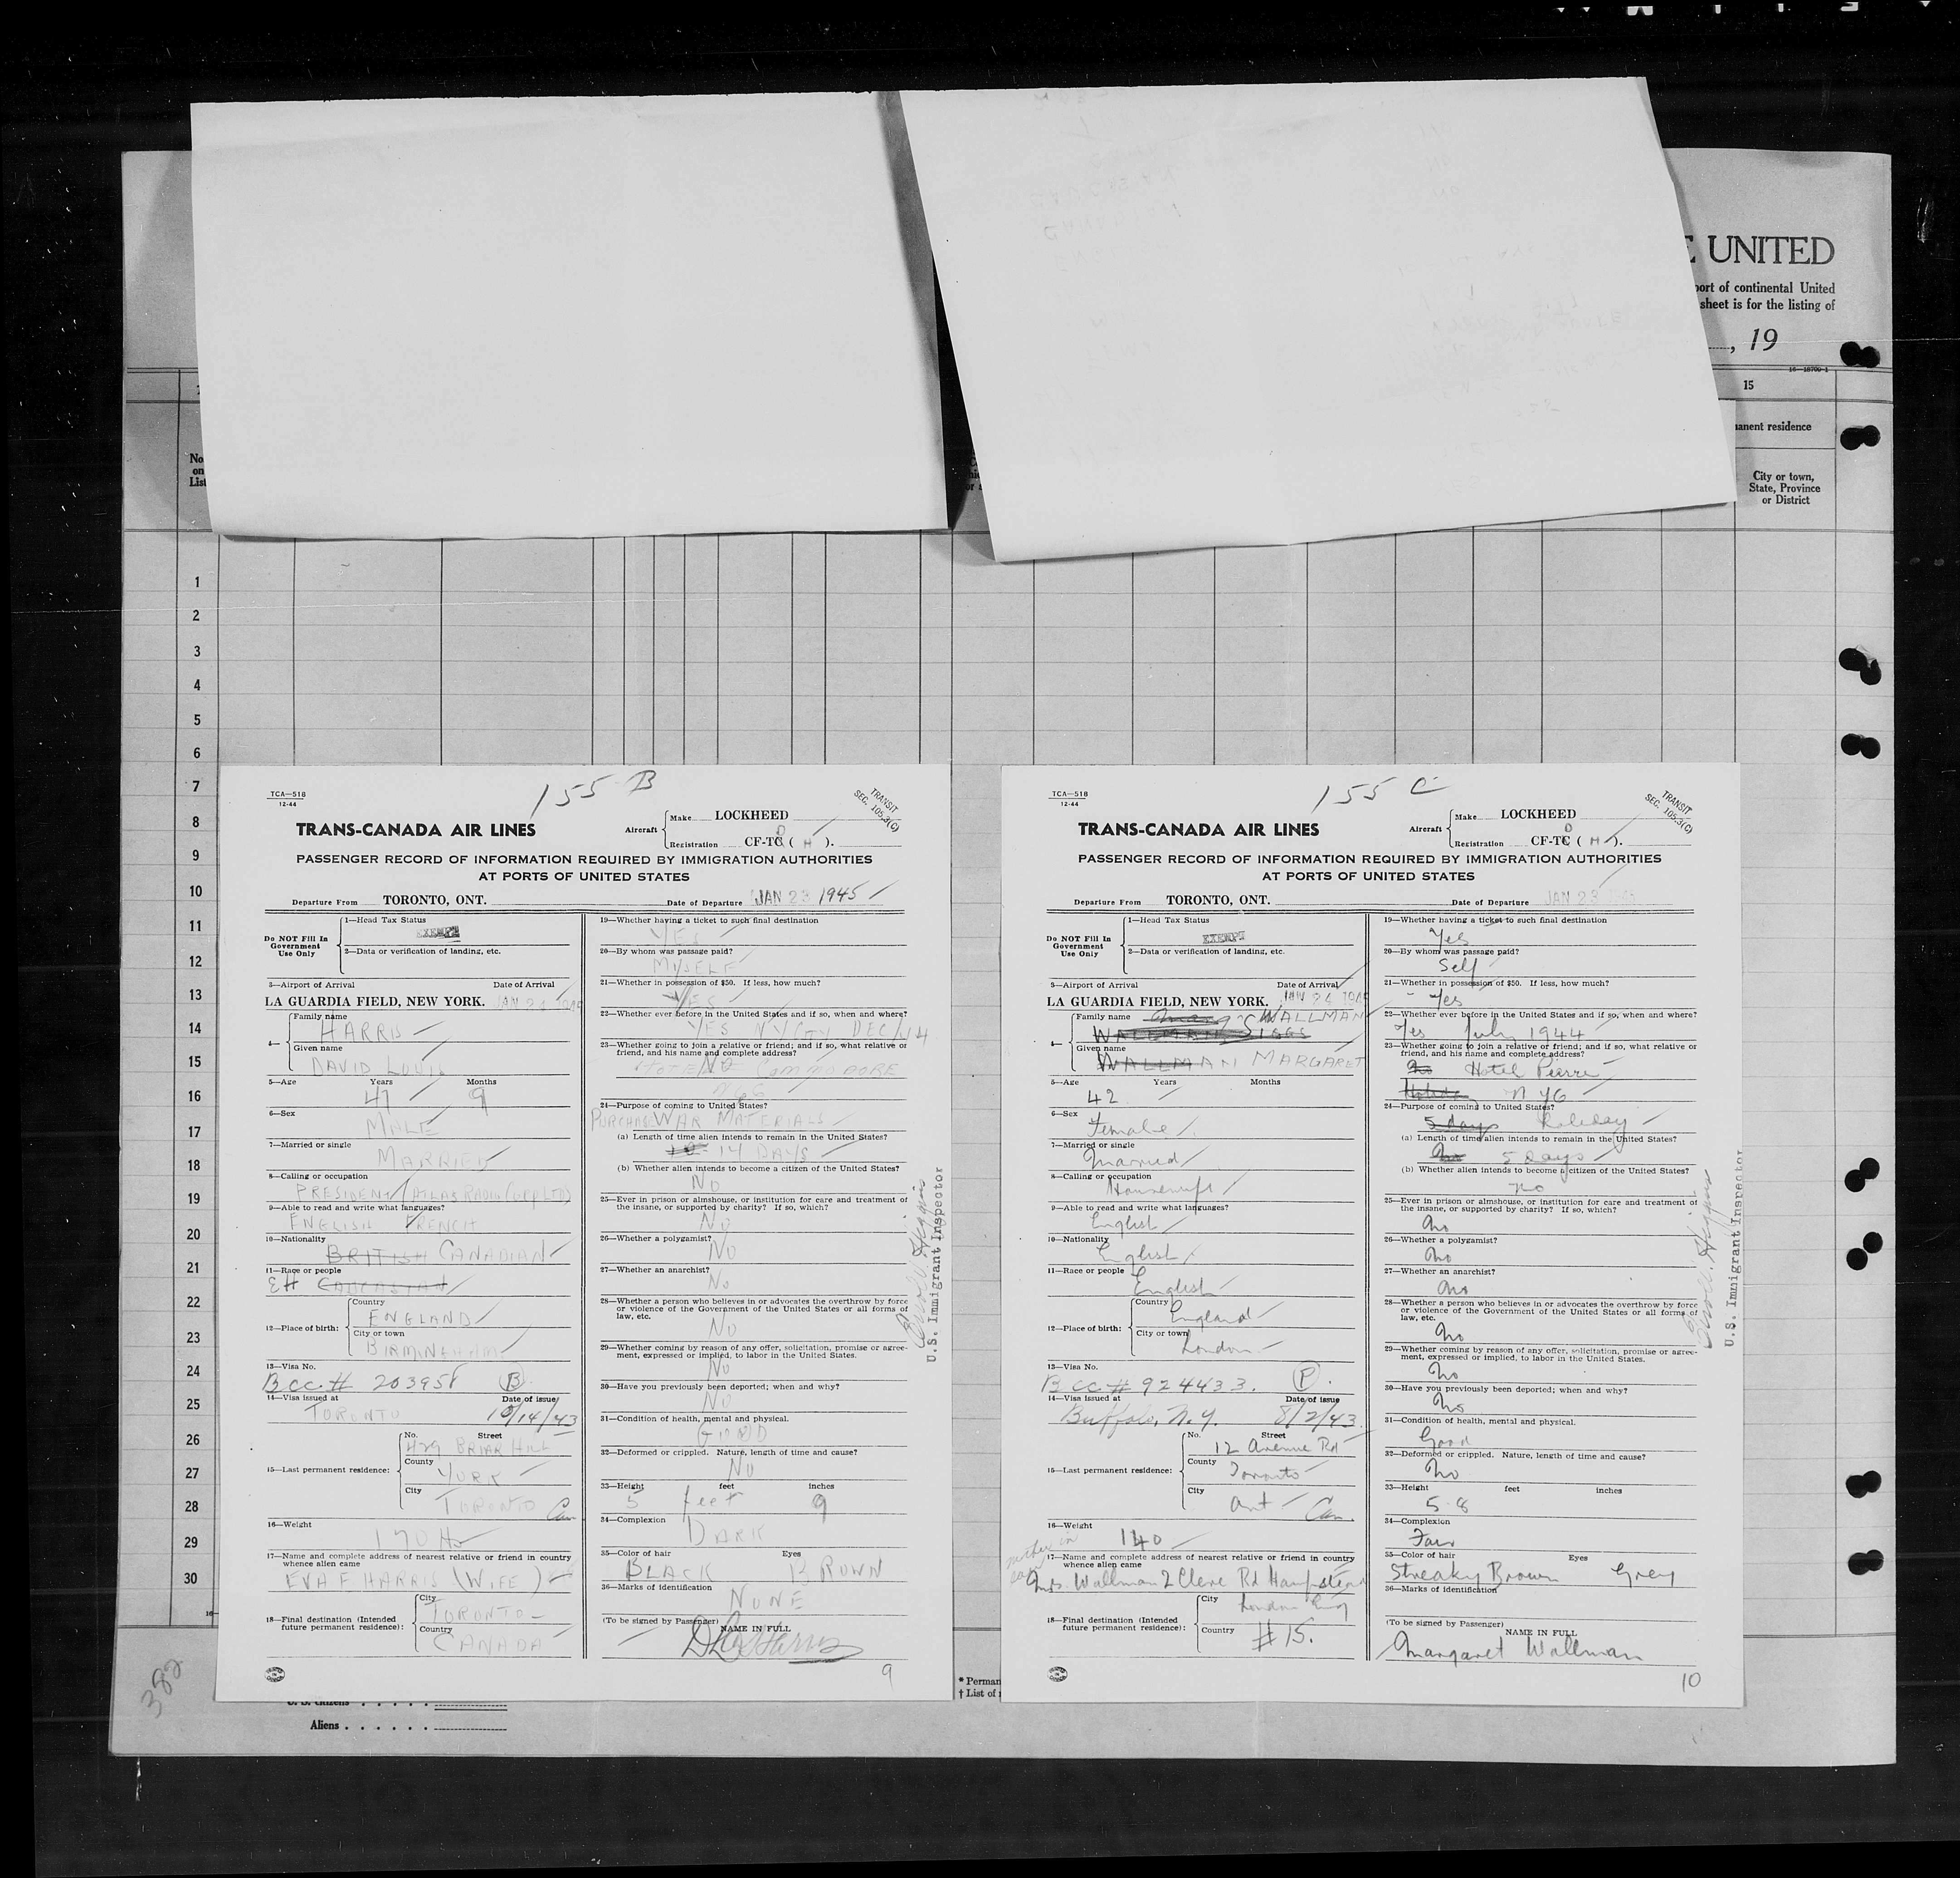 E UNITED
port of continental United
sheet is for the listing of
, 19
16—18709-1
15
manent residence
City or town,
State, Province
or District
No.
on
List
1
2
3
4
5
6
7
8
9
10
11
12
13
14
15
16
17
18
19
20
21
22
23
24
25
26
27
28
29
30
382
U. S. Citizens
Aliens
* Perman
† List of
155 B
TCA—518
12-44
TRANSIT
SEC. 105.3(C)
TRANS-CANADA AIR LINES
Aircraft
Make LOCKHEED
Registration CF-TC ( H ).
D
PASSENGER RECORD OF INFORMATION REQUIRED BY IMMIGRATION AUTHORITIES
AT PORTS OF UNITED STATES
Departure From TORONTO, ONT. Date of Departure JAN 23 1945
Do NOT Fill In
Government
Use Only
1—Head Tax Status
EXEMPT
2—Data or verification of landing, etc.
3—Airport of Arrival Date of Arrival
LA GUARDIA FIELD, NEW YORK. JAN 24 1945
4—
Family name
HARRIS
Given name
DAVID LOUIS
5—Age Years Months
47 9
6—Sex
MALE
7—Married or single
MARRIED
8—Calling or occupation
PRESIDENT ATLAS RADIO CORP LTD
9—Able to read and write what languages?
ENGLISH FRENCH
10—Nationality
BRITISH CANADIAN
11—Race or people
EH CAUCASIAN
12—Place of birth:
Country
ENGLAND
City or town
BIRMINGHAM
13—Visa No.
BCC.# 203958 B
14—Visa issued at Date of issue
TORONTO 10/14/43
15—Last permanent residence:
No. Street
429 BRIAR HILL
County
YORK
City
TORONTO Can
16—Weight
170
17—Name and complete address of nearest relative or friend in country
whence alien came
EVA F HARRIS (WIFE)
18—Final destination (Intended
future permanent residence):
City
TORONTO
Country
CANADA
19—Whether having a ticket to such final destination
YES
20—By whom was passage paid?
MYSELF
21—Whether in possession of $50. If less, how much?
YES
22—Whether ever before in the United States and if so, when and where?
YES N Y CITY DEC/44
23—Whether going to join a relative or friend; and if so, what relative or
friend, and his name and complete address?
NO
HOTEL COMMODORE
NYC
24—Purpose of coming to United States?
PURCHASE WAR MATERIALS
(a) Length of time alien intends to remain in the United States?
14 DAYS
(b) Whether alien intends to become a citizen of the United States?
NO
25—Ever in prison or almshouse, or institution for care and treatment of
the insane, or supported by charity? If so, which?
NO
26—Whether a polygamist?
NO
27—Whether an anarchist?
NO
28—Whether a person who believes in or advocates the overthrow by force
or violence of the Government of the United States or all forms of
law, etc.
NO
29—Whether coming by reason of any offer, solicitation, promise or agree-
ment, expressed or implied, to labor in the United States.
NO
30—Have you previously been deported; when and why?
NO
31—Condition of health, mental and physical.
GOOD
32—Deformed or crippled. Nature, length of time and cause?
NO
33—Height feet inches
5 feet 9
34—Complexion
DARK
35—Color of hair Eyes
BLACK BROWN
36—Marks of identification
NONE
(To be signed by Passenger)
NAME IN FULL
9
U.S. Immigrant Inspector
155 C
TCA—518
12-44
TRANSIT
SEC. 105.3(C)
TRANS-CANADA AIR LINES
Aircraft
Make LOCKHEED
Registration CF-TC ( H ).
D
PASSENGER RECORD OF INFORMATION REQUIRED BY IMMIGRATION AUTHORITIES
AT PORTS OF UNITED STATES
Departure From TORONTO, ONT. Date of Departure JAN 23 1945
Do NOT Fill In
Government
Use Only
1—Head Tax Status
EXEMPT
2—Data or verification of landing, etc.
3—Airport of Arrival Date of Arrival
LA GUARDIA FIELD, NEW YORK. JAN 24 1945
4—
Family name
WALLMAN
Given name
WALLMAN MARGARET
5—Age Years Months
42
6—Sex
Female
7—Married or single
Married
8—Calling or occupation
Housewife
9—Able to read and write what languages?
English
10—Nationality
English
11—Race or people
English
12—Place of birth:
Country
England
City or town
London
13—Visa No.
BCC# 924433. P.
14—Visa issued at Date of issue
Buffalo, N.Y. 8/2/43
15—Last permanent residence:
No. Street
12 Avenue Rd
County
Toronto
City
Ont Can.
16—Weight
140
17—Name and complete address of nearest relative or friend in country
whence alien came
mother in
law
Mrs. Wallman 2 Cleve Rd Hampstead
18—Final destination (Intended
future permanent residence):
City
London Eng
Country
#15.
19—Whether having a ticket to such final destination
Yes
20—By whom was passage paid?
Self
21—Whether in possession of $50. If less, how much?
Yes
22—Whether ever before in the United States and if so, when and where?
Yes July 1944
23—Whether going to join a relative or friend; and if so, what relative or
friend, and his name and complete address?
No Hotel Pierre
N YC
24—Purpose of coming to United States?
5 days holiday
(a) Length of time alien intends to remain in the United States?
No 5 days
(b) Whether alien intends to become a citizen of the United States?
no
25—Ever in prison or almshouse, or institution for care and treatment of
the insane, or supported by charity? If so, which?
No
26—Whether a polygamist?
No
27—Whether an anarchist?
No
28—Whether a person who believes in or advocates the overthrow by force
or violence of the Government of the United States or all forms of
law, etc.
No
29—Whether coming by reason of any offer, solicitation, promise or agree-
ment, expressed or implied, to labor in the United States.
No
30—Have you previously been deported; when and why?
No
31—Condition of health, mental and physical.
Good
32—Deformed or crippled. Nature, length of time and cause?
No
33—Height feet inches
5 8
34—Complexion
Fair
35—Color of hair Eyes
Streaky Brown Grey
36—Marks of identification
(To be signed by Passenger)
NAME IN FULL
Margaret Wallman
10
U.S. Immigrant Inspector